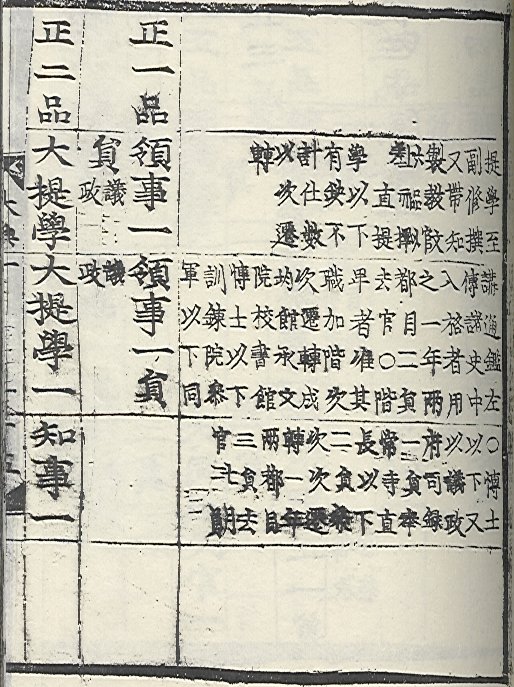 提學至
副修撰
又帶知
製
擬
差直提
學以下
有缺不
計仕數
以次遷
轉
講通鑑左
傳諸史中
入格者用
之一年兩
都目二員
去官〇階
卑者准其
職加階次
次遷轉成
均館承文
院校書館
博士以下
訓鍊院參
軍以下同
〇博士
以下又
以議政
府司錄
一員奉
常寺直
長以下
二員
次次遷
轉一年
兩都目
三員去
官
正一品
領事一
員議政
領事一員
議政
正二品
大提學
大提學一
知事一